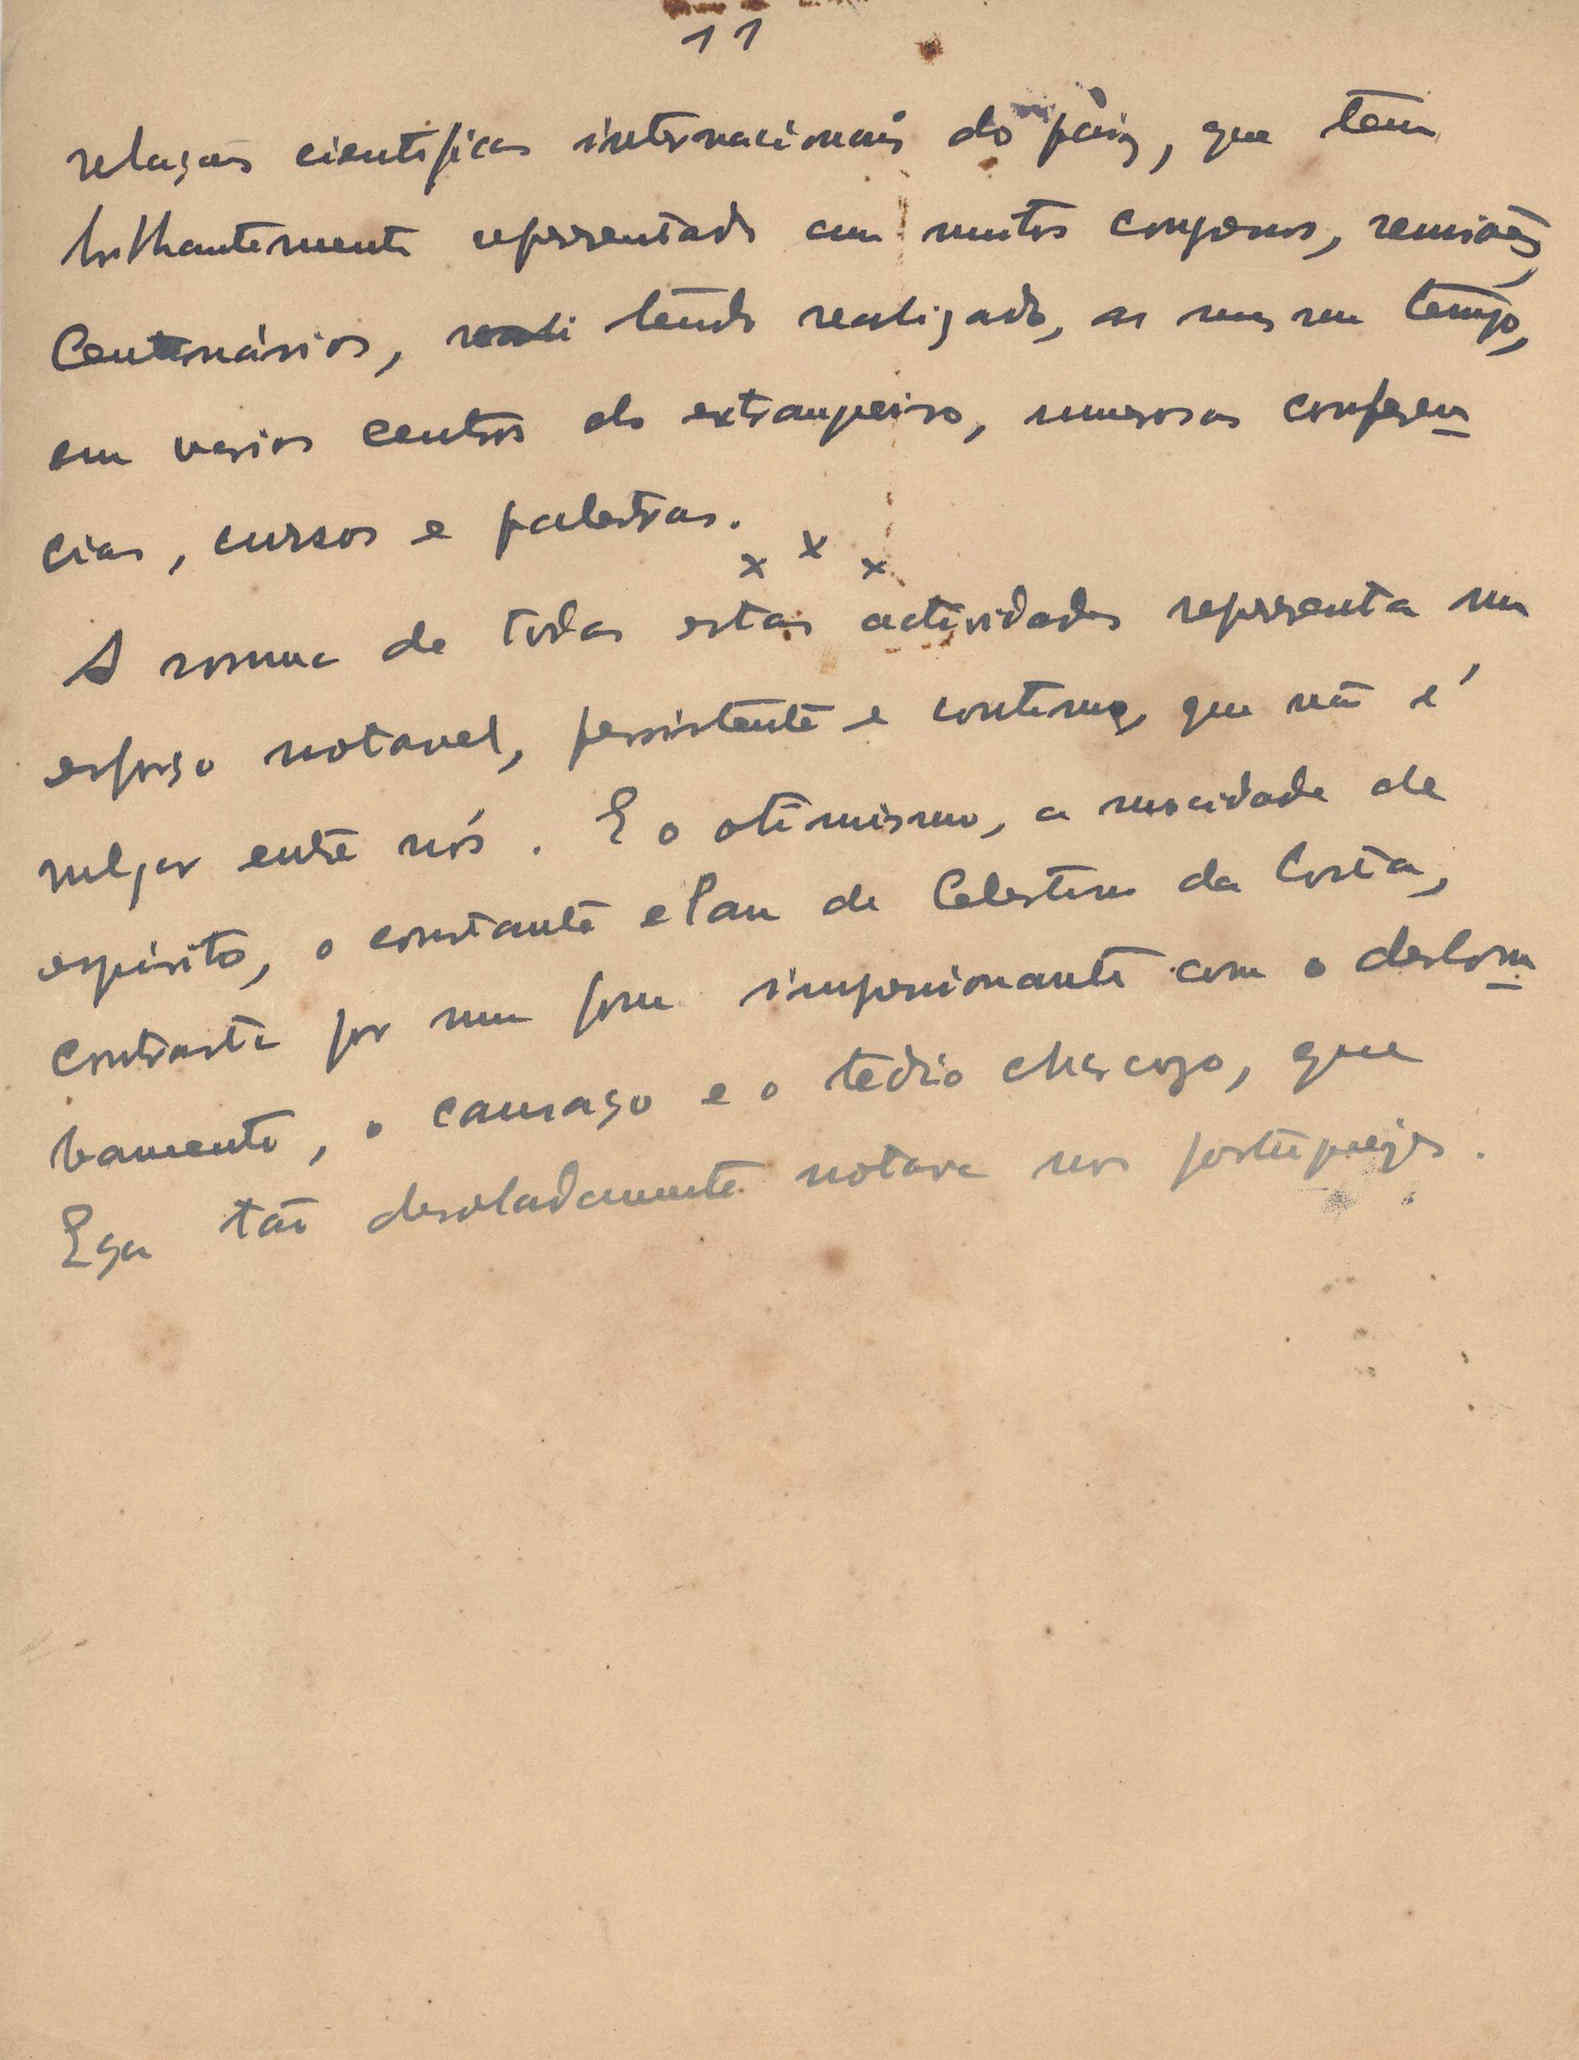 11
relações cientificas internacionais do paiz, que tem
brilhantemente representado em muitos congressos, reuniões,
Centenários, tendo realizado, ao mesmo tempo,
em varios centros do extrangeiro, numerosas conferen
cias, cursos e palestras.
x x x
A somma de todas estas actividades representa um
esforço notavel, persistente e continuo, que não é
vulgar entre nós. E o otimismo, a mocidade de
espirito, o constante elan de Celestino da Costa,
contrasta por uma forma impressionante com o deslom
bamento, o cansaço e o tedio chercozo, que
Eça tão desoladamente notava nos portuguezes.